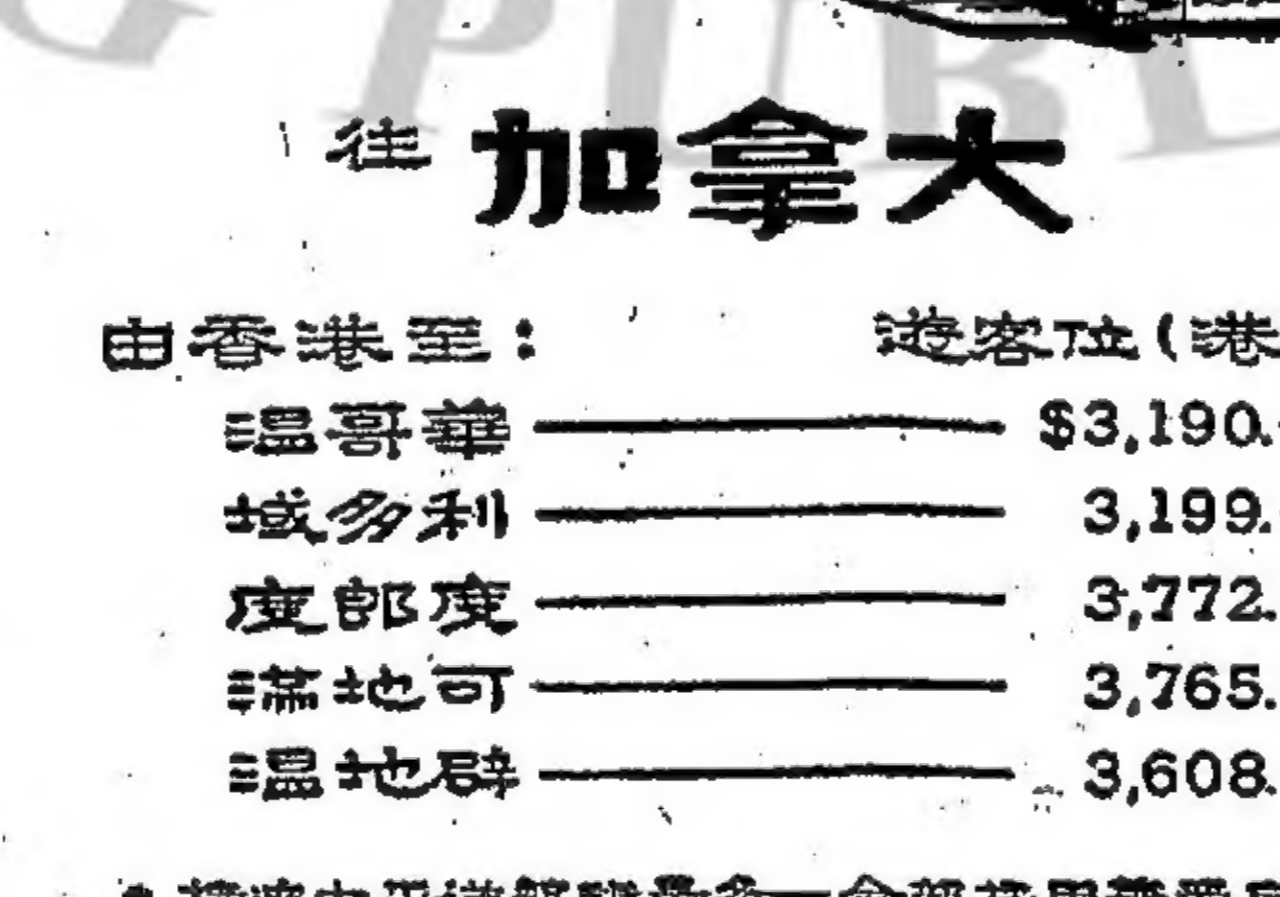 往 加拿大
由香港至： 遊客位(港
溫哥華 $3,190.
域多利 3,199.
度郎度 3,772.
滿地可 3,765.
溫地辟 3,608.